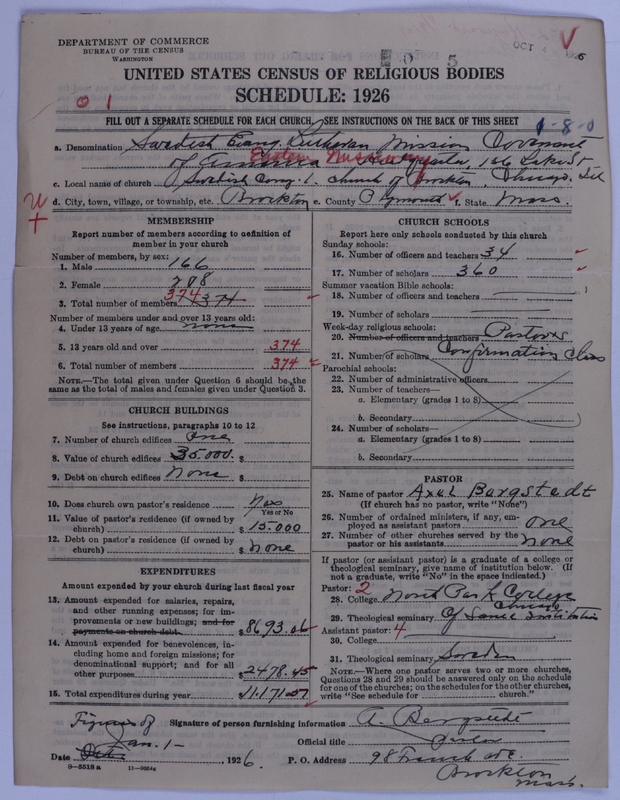 DEPARTMENT OF COMMERCE
BUREAU OF THE CENSUS
WASHINGTON
OCT
UNITED STATES CENSUS OF RELIGIOUS BODIES
SCHEDULE: 1926
FILL OUT A SEPARATE SCHEDULE FOR EACH CHURCH. SEE INSTRUCTIONS ON THE BACK OF THIS SHEET
0 1
1-8-0
a. Denomination Swedish Evang. Lutheran Mission Covenant
of America 166 Lake St
c. Local name of church Swedish Cong'l. Church of Brockton, Chicago, Ill
d. City, town, village, or township, etc. Brockton e. County Plymouth f. State Mass.
MEMBERSHIP
Report number of members according to definition of member in your church
Number of members, by sex:
1. Male 166
2. Female 208
3. Total number of members 374 374
Number of members under and over 13 years old:
4. Under 13 years of age none
5. 13 years old and over 374
6. Total number of members 374
NOTE.—The total given under Question 6 should be the same as the total of males and females given under Question 3.
CHURCH BUILDINGS
See instructions, paragraphs 10 to 12
7. Number of church edifices One
8. Value of church edifices 35.000. $
9. Debt on church edifices None $
10. Does church own pastor's residence Yes
Yes or No
11. Value of pastor's residence (if owned by church) $ 15.000
12. Debt on pastor's residence (if owned by church) $ None
EXPENDITURES
Amount expended by your church during last fiscal year
13. Amount expended for salaries, repairs, and other running expenses; for improvements or new buildings; and for payments on church debt $ 8693.06
14. Amount expended for benevolences, including home and foreign missions; for denominational support; and for all other purposes $ 2478.45
15. Total expenditures during year $ 11.171.07
CHURCH SCHOOLS
Report here only schools conducted by this church
Sunday schools:
16. Number of officers and teachers 34
17. Number of scholars 360
Summer vacation Bible schools:
18. Number of officers and teachers
19. Number of scholars
Week-day religious schools:
20. Number of officers and teachers Pastors
21. Number of scholars Confirmation Class
Parochial schools:
22. Number of administrative officers
23. Number of teachers—
a. Elementary (grades 1 to 8)
b. Secondary
24. Number of scholars—
a. Elementary (grades 1 to 8)
b. Secondary
PASTOR
25. Name of pastor Axel Bergstedt
(If church has no pastor, write "None")
26. Number of ordained ministers, if any, employed as assistant pastors one
27. Number of other churches served by the pastor or his assistants none
If pastor (or assistant pastor) is a graduate of a college or theological seminary, give name of institution below. (If not a graduate, write "No" in the space indicated.)
Pastor: 2
28. College North Park College
Chicago
29. Theological seminary Of Same Institution
Assistant pastor: 4
30. College
31. Theological seminary Sweden
NOTE.—Where one pastor serves two or more churches, Questions 28 and 29 should be answered only on the schedule for one of the churches; on the schedules for the other churches, write "See schedule for church."
Figures of Signature of person furnishing information A. Bergstedt
Jan. 1- Official title Pastor
Date 1926. P. O. Address 98 French Ave.
Brockton
Mass.
8-5518 a